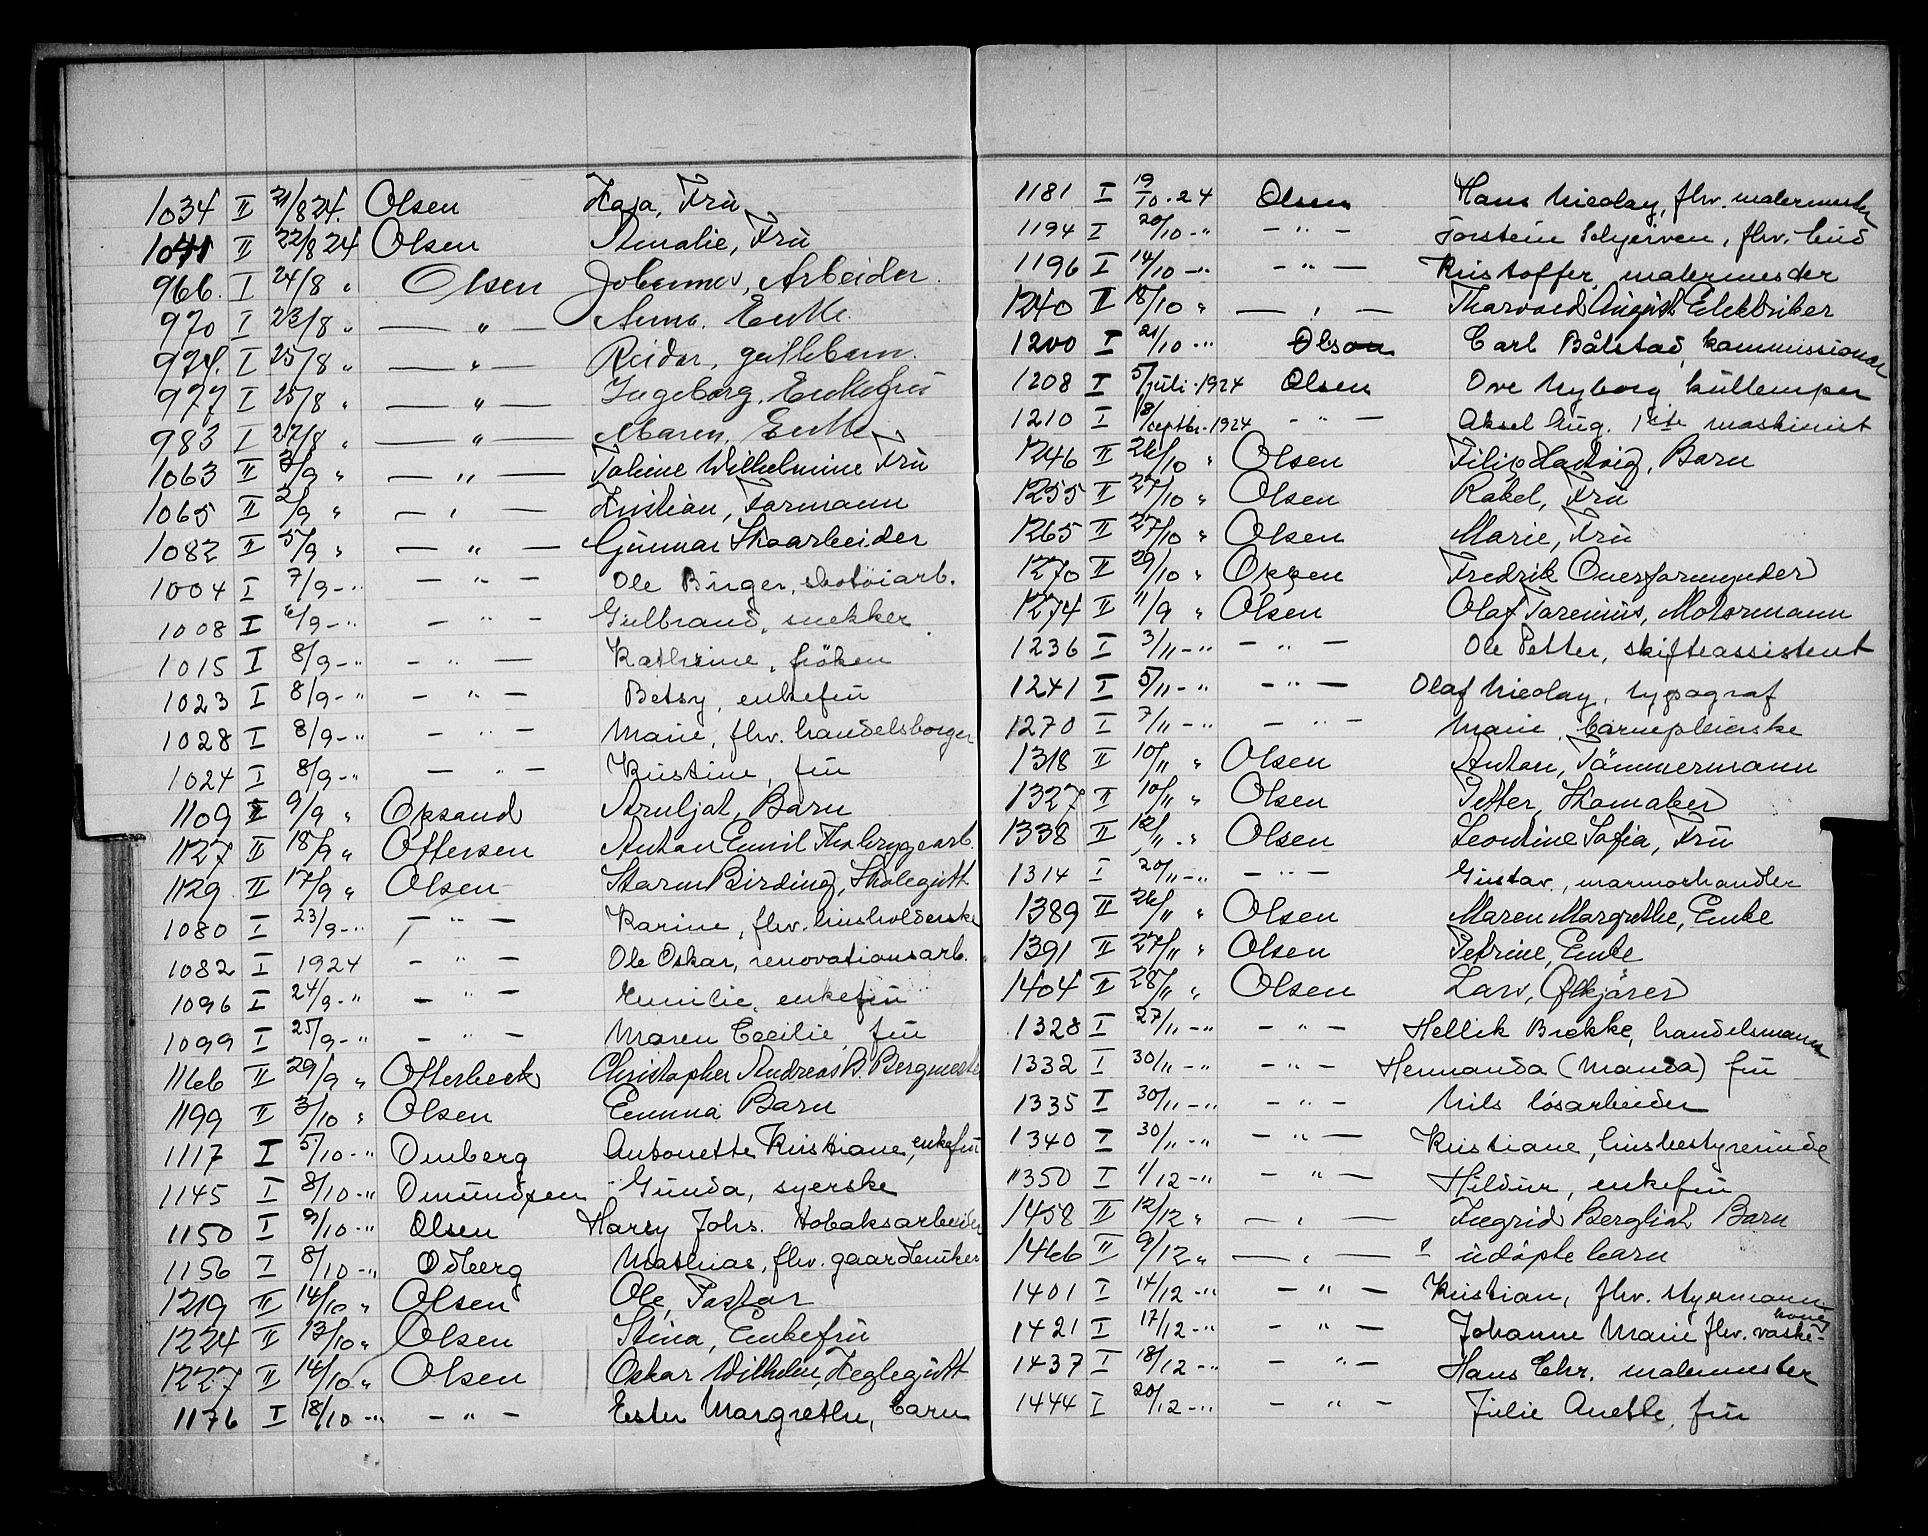 1034 II 21/8 24. Olsen Kaja, Fru
1041 II 22/8 24 Olsen Amalie, Fru
966. I 24/8 " Olsen Johannes, Arbeider.
970 I 23/8 " — " — Anna. Enke.
974. I 25/8 " — " — Reidar, guttebarn.
977 I 25/8 " — " — Ingeborg, Enkefru
983 I 27/8 " — " — Maren, Enke
1063 II 3/9 " — " — Wilhelmine Fru
1065 II 2/9 " — " — Kristian, Formann
1082 II 5/9 " — " — Gunnar Skoarbeider
1004 I 7/9 - " — " — Ole Birger, skotöiarb.
1008 I 6/9 - " — " — Gulbrand, snekker
1015 I 8/9 - " — " — Kathrine, fröken
1023 I 8/9 - " — " — Betsy, enkefru
1028 I 8/9 - " — " — Marie, fhv. handelsborger
1024 I 8/9 - " — " — Kristine, fru
1109 II 9/9 " Opsand Arnljot, Barn
1127 II 18/9 " Ottersen Anton Emil
1129 II 17/9 " Olsen Storm Birding, Skolegutt
1080 I 23/9 - " — " — Karine, fhv. husholderske
1082 I 1924 — " — Ole Oskar, renovationsarb.
1096 I 24/9 - " — " — Emilie, enkefru
1099 I 25/9 - " — " — Maren Cecilie, fru
1166 II 29/9 " Otterbeck Christopher Andreas B. Bergmester
1199 II 3/10 " Olsen Emma Barn
1117 I 5/10 - " Omberg Antonette Kristiane, enkefru
1145 I 8/10 - " Omundsen Gunda, syerske
1150 I 9/10 - " Olsen Harry Johs. Tobaksarbeider
1156 I 8/10 - " Odberg Mathias, fhv. gaardbruker
1219 II 14/10 " Olsen Ole, Pastor
1224 II 13/10 " Olsen Stina, Enkefru
1227 II 14/10 " Olsen Oskar Wilhelm, Keglegutt
1176 I 18/10 - " — " — Ester Margrethe, barn
1181 I 19/10 - 24 Olsen Hans Nicolay, fhv. malermester
1194 I 20/10 - " — " — Torstein Schjerven, fhv. bud
1196 I 14/10 - " — " — Kristoffer, malermester
1240 II 18/10 " — " — Tharvald August Elektriker
1200 I 21/10 - " Olson Carl Bålstad, kommissionær
1208 I 5/juli - 1924 Olsen Ove Nyborg kullemper
1210 I 8/septbr. - 1924 — " — Aksel Aug. 1ste maskinist
1246 II 26/10 " Olsen Filip Hartvig, Barn
1255 II 27/10 " Olsen Rakel, Fru
1265 II 27/10 " Olsen Marie, Fru
1270 II 29/10 " Oppen Fredrik Overformynder
1274 II 11/9 " Olsen Olaf Torenius, Motormann
1236 I 3/11 - " — " — Ole Petter, skifteassistent
1241 I 5/11 - " — " — Olaf Nicolay, typograf
1270 I 7/11 - " — " — Marie, barnepleierske
1318 II 10/11 " Olsen Anton, Tömmermann
1327 II 10/11 " Olsen Petter, Skomaker
1338 II 12/11 " Olsen Leontine Sofia, Fru
1314 I 20/11 - " — " — Gustav, marmorhandler
1389 II 26/11 " Olsen Maren Margrethe, Enke
1391 II 27/11 " Olsen Petrine, Enke
1404 II 28/11 " Olsen Lars,
1328 I 27/11 - " — " — Hellik Brekke, handelsmann
1332 I 30/11 - " — " — Hermanda (Manda) fru
1335 I 30/11 - " — " — Nils lösarbeider
1340 I 30/11 - " — " — Kristiane, husbestyrerinde
1350 I 1/12 - " — " — Hildur, enkefru
1458 II 12/12 " — " — Ingrid Bergliot Barn
1466 II 9/12 " — " — udöpte barn
1401 I 14/12 - " — " — Kristian, fhv. styrmann
1421 I 17/12 - " — " — Johanne Marie fhv. vaskekone
1437 I 18/12 - " — " — Hans Chr. malermester
1444 I 20/12 - " — " — Julie Anette, fru